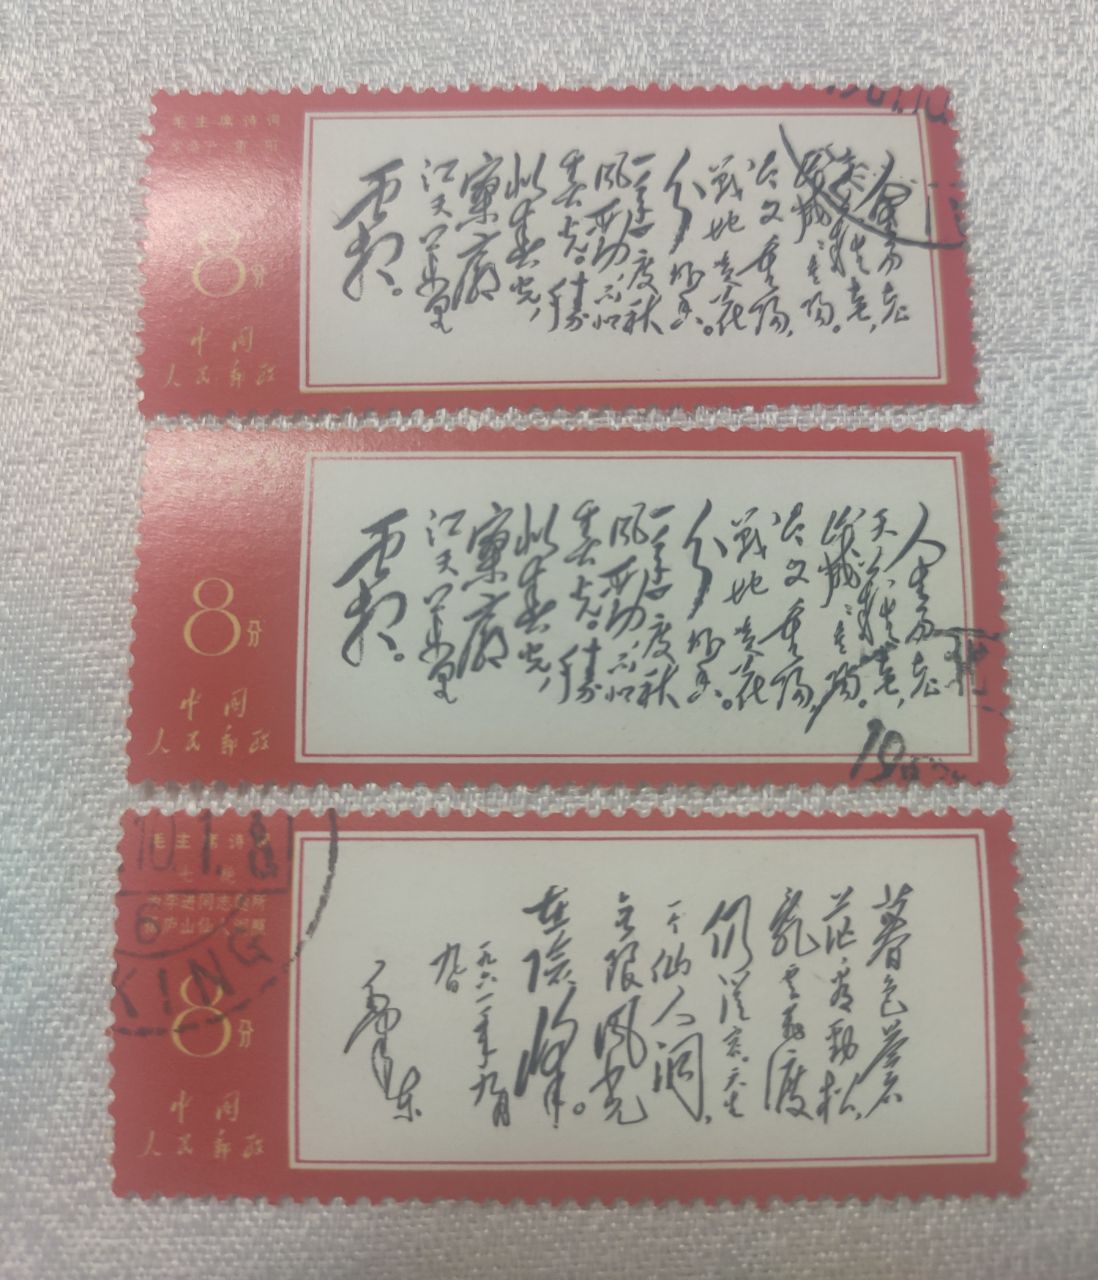 毛主席诗词
采桑子 重阳
8分
中国
人民邮政
人生易老
天难老,
岁岁重阳。
今又重阳,
战地黄花
分外香。
一年一度秋
风劲,不似
春光。胜
似春光,
寥廓
江天万里
霜。
8分
中国
人民邮政
人生易老
天难老,
岁岁重阳。
今又重阳,
战地黄花
分外香。
一年一度秋
风劲,不似
春光。胜
似春光,
寥廓
江天万里
霜。
19
毛主席诗词
七绝
为李进同志题所
摄庐山仙人洞照
8分
中国
人民邮政
暮色苍
茫看劲松,
乱云飞渡
仍从容。天生
一个仙人洞,
无限风光
在险峰。
一九六一年九月
九日
毛泽东
10.1.
6
KING